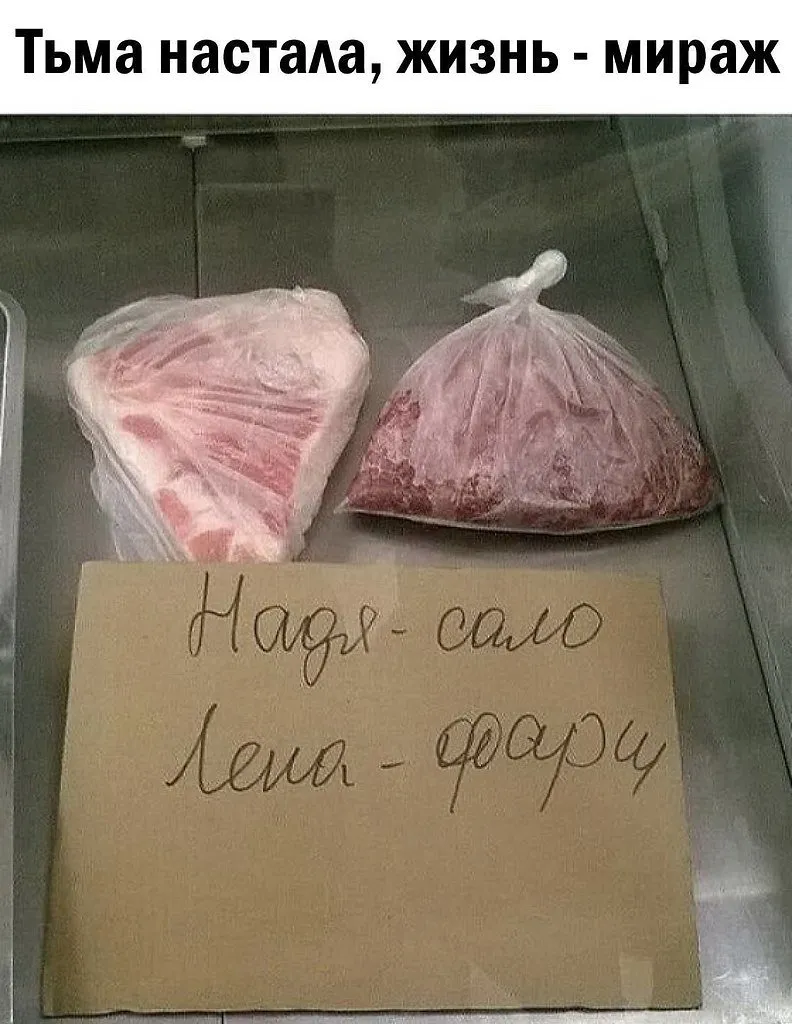 Тьма настала, жизнь - мираж
Надя - сало
Лена - фарш